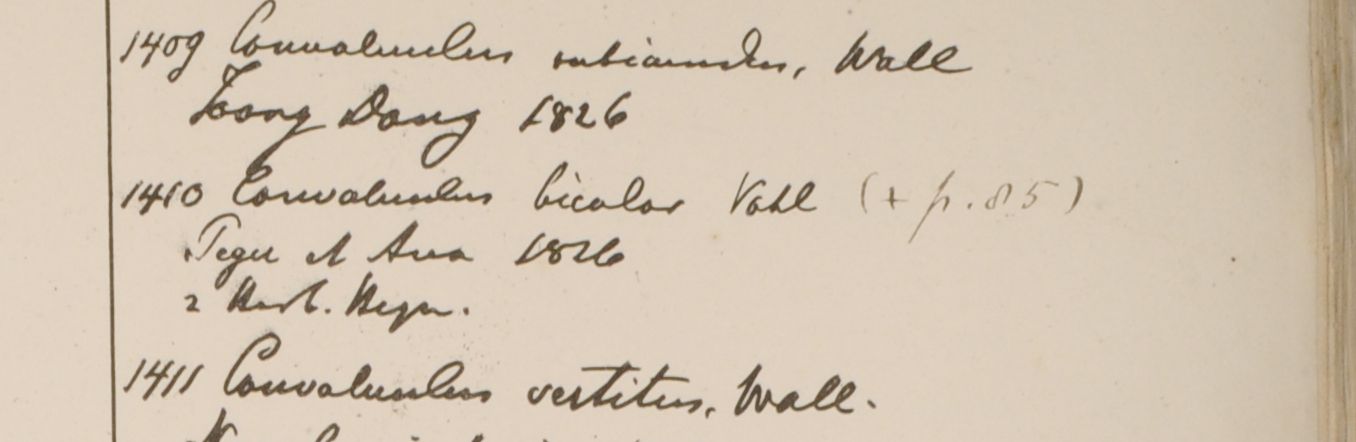 1409 Convolvulus rubicundus, Wall
Toong Dong 1826
1410 Convolvulus bicolor Vahl (+ p. 85)
Pegu et Ava 1826
2 Herb. Heyn.
1411 Convolvulus vestitus, Wall.